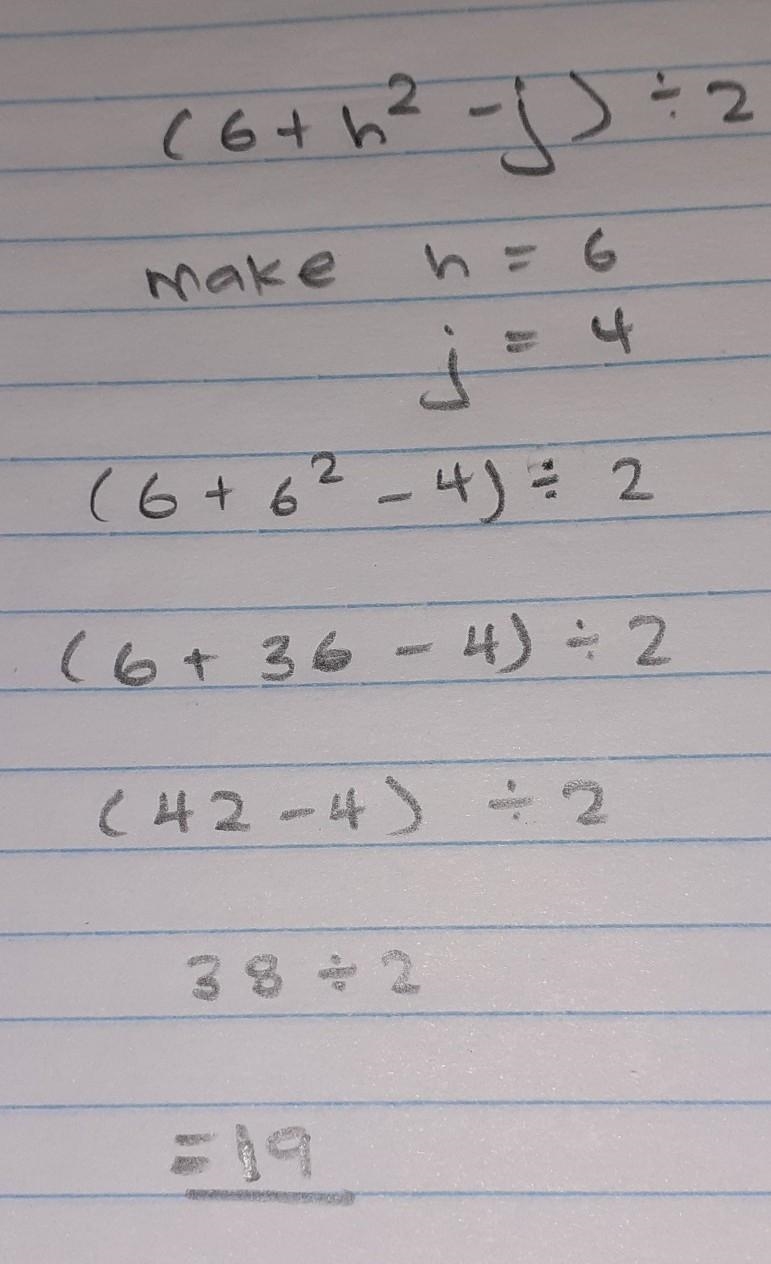 (6 + h² - j) ÷ 2
make h = 6
j = 4
(6 + 6² - 4) ÷ 2
(6 + 36 - 4) ÷ 2
(42 - 4) ÷ 2
38 ÷ 2
= 19